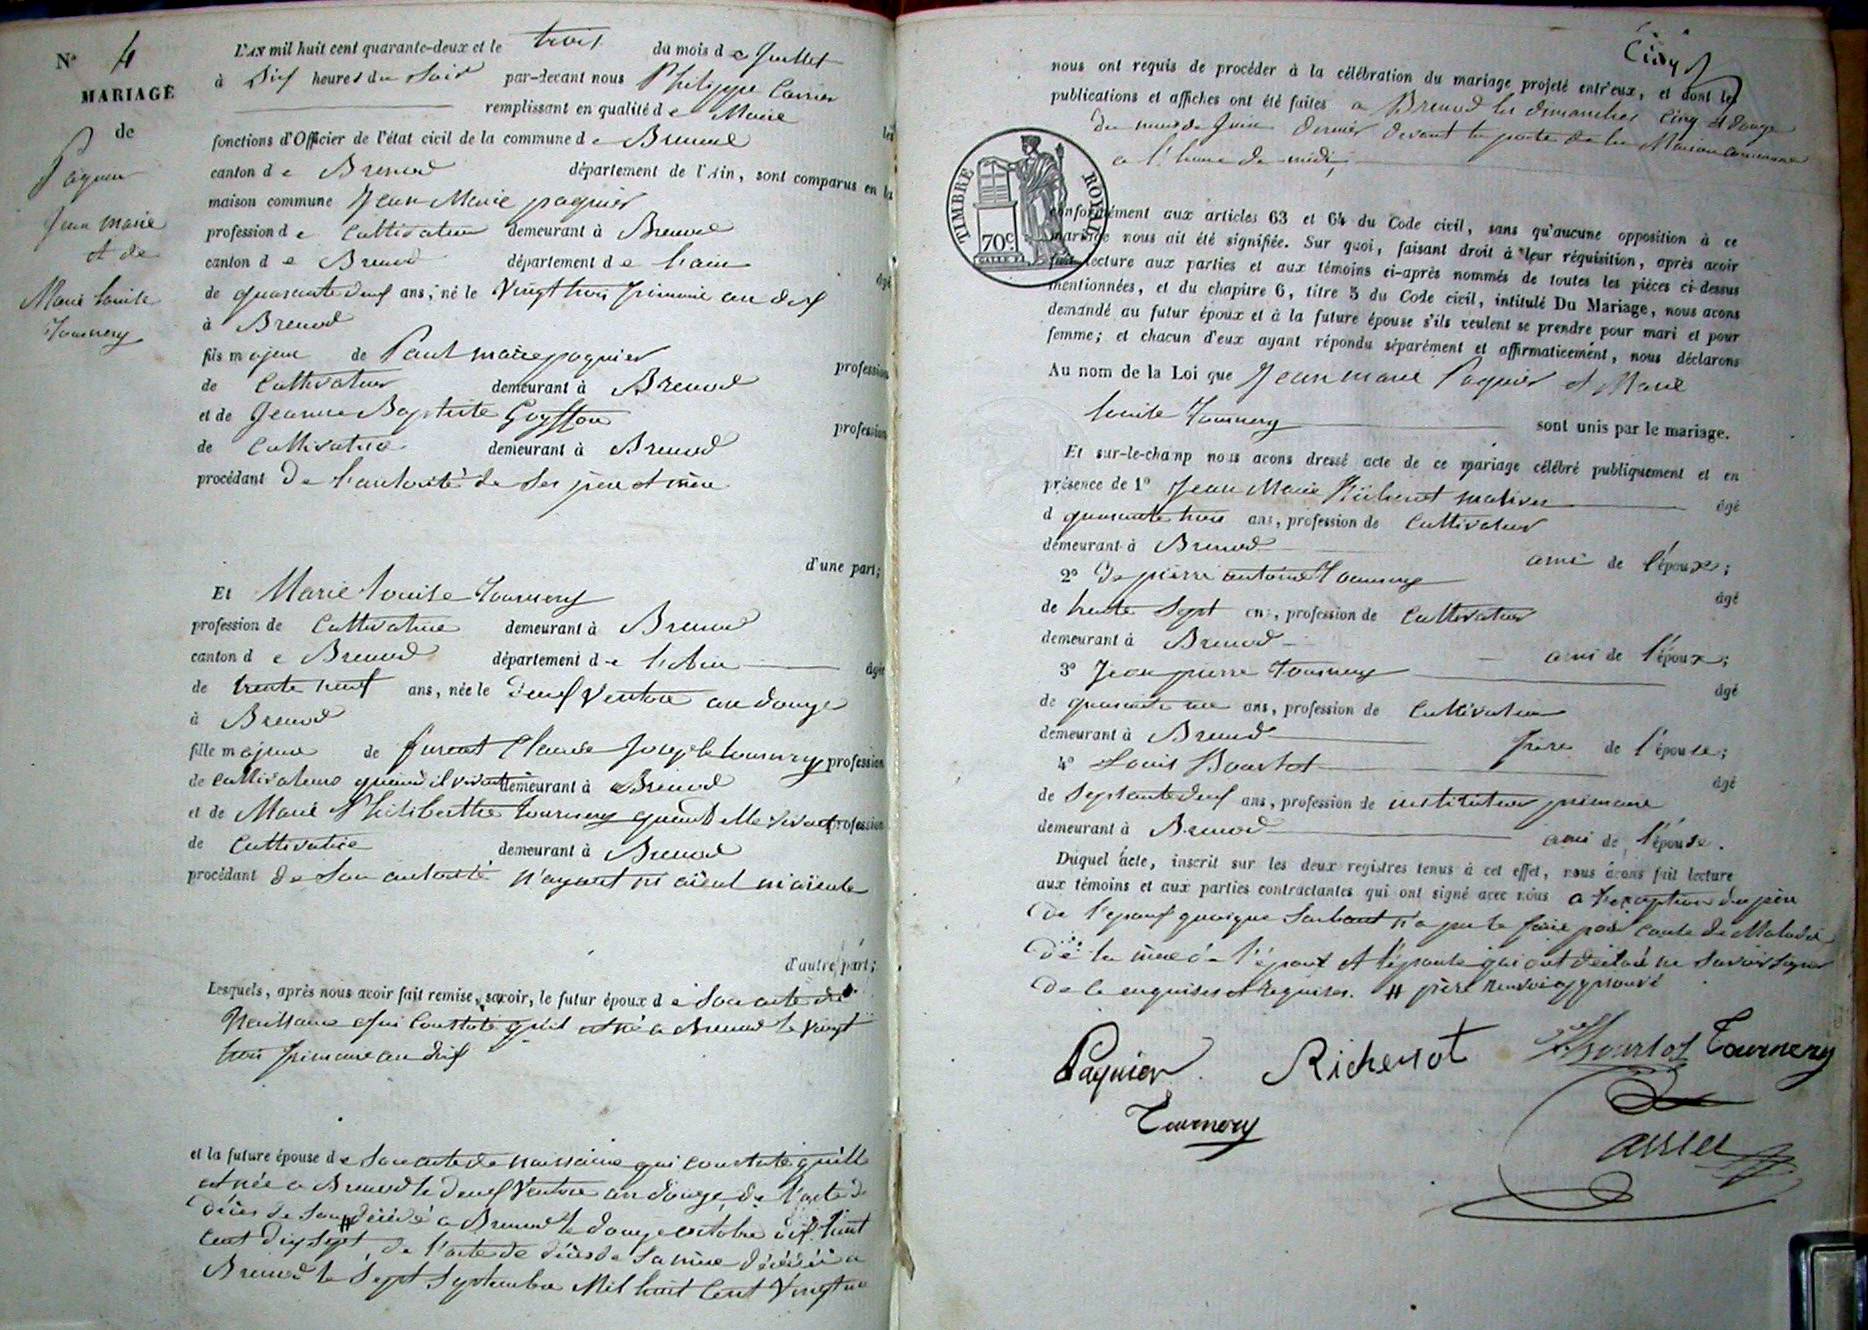 Nº 4
MARIAGE
de
Paquier
Jean marie
et de
Marie Louise
Tournery
L'AN mil huit cent quarante-deux et le trois du mois de Juillet
à Dix heures du Soir par-devant nous Philippe Carrier
remplissant en qualité de Maire les
fonctions d'Officier de l'état civil de la commune de Brenod
canton de Brenod département de l'Ain, sont comparus en la
maison commune Jean Marie paquier
profession de Cultivateur demeurant à Brenod
canton de Brenod département de l'ain âgé
de quarante deux ans, né le Vingt trois frimaire an dix
à Brenod
fils majeur de Paul marie paquier profession
de Cultivateur demeurant à Brenod
et de Jeanne Baptiste Goyffon profession
de Cultivatrice demeurant à Brenod
procédant De l'autorité de Ses père et mère
d'une part;
Et Marie Louise Tournery
profession de Cultivatrice demeurant à Brenod
canton de Brenod département de l'Ain âgée
de trente neuf ans, née le deux Ventose an douze
à Brenod
fille majeure de furent Claude Joseph tournery profession
de cultivateur quand il vivait demeurant à Brenod
et de Marie Philiberthe tournery quand Elle vivait profession
de Cultivatrice demeurant à Brenod
procédant de Son autorité n'ayant ni aïeul ni aïeule
d'autre part;
Lesquels, après nous avoir fait remise, savoir, le futur époux de Son acte de
Naissance qui Constate qu'il est né a Brenod le vingt
trois frimaire an dix
et la future épouse de Son acte de naissance qui constate qu'elle
est née a Brenod le deux Ventose an douze, de l'acte de
Décès de Son # décédé a Brenod le douze octobre dix huit
Cent dix sept, de l'acte de décès de Sa mère décédée a
Brenod le Sept Septembre Mil huit Cent Vingt un
Cinq
nous ont requis de procéder à la célébration du mariage projeté entr'eux, et dont les
publications et affiches ont été faites a Brenod les dimanches Cinq et douze
du mois de Juin dernier devant la porte de la Maison commune
a l'heure de midi
TIMBRE ROYAL
70c
conformément aux articles 63 et 64 du Code civil, sans qu'aucune opposition à ce
mariage nous ait été signifiée. Sur quoi, faisant droit à leur réquisition, après avoir
fait lecture aux parties et aux témoins ci-après nommés de toutes les pièces ci-dessus
mentionnées, et du chapitre 6, titre 5 du Code civil, intitulé Du Mariage, nous avons
demandé au futur époux et à la future épouse s'ils veulent se prendre pour mari et pour
femme; et chacun d'eux ayant répondu séparément et affirmativement, nous déclarons
Au nom de la Loi que Jean marie Paquier et Marie
Louise Tournery sont unis par le mariage.
Et sur-le-champ nous avons dressé acte de ce mariage célébré publiquement et en
présence de 1º Jean Marie Richerot âgé
d quarante trois ans, profession de Cultivateur
demeurant à Brenod ami de l'époux;
2º De pierre antoine Tournery âgé
de trente Sept ans, profession de Cultivateur
demeurant à Brenod ami de l'époux;
3º Jean pierre Tournery âgé
de quarante un ans, profession de Cultivateur
demeurant à Brenod frère de l'épouse;
4º Louis Bourlot âgé
de Septante deux ans, profession de instituteur primaire
demeurant à Brenod ami de l'épouse.
Duquel acte, inscrit sur les deux registres tenus à cet effet, nous avons fait lecture
aux témoins et aux parties contractantes qui ont signé avec nous a l'exception du père
De l'époux quoique Sachant n'a pu le faire pour cause de Maladie
De la mère de l'époux et l'épouse qui ont déclaré ne Savoir signer
De ce enquises et requises. # père renvoi approuvé
Paquier Richerot Bourlot Tournery
Tournery